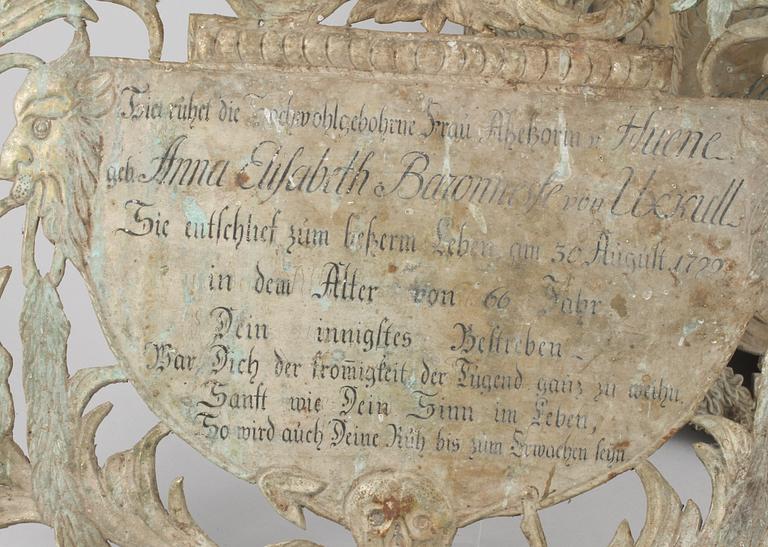 Hier ruhet die Hochwohlgebohrne Frau Aßeßorin v Huene
geb Anna Elisabeth Baronnesse von Uxkull
Sie entschlief zum beßerm Leben am 30 August 1799
in dem Alter von 66 Jahr
Dein innigstes Bestreben
War Dich der from̄igkeit der Tugend ganz zu weihn,
Sanft wie Dein Sinn im Leben,
So wird auch Deine Ruh bis zum Erwachen seyn